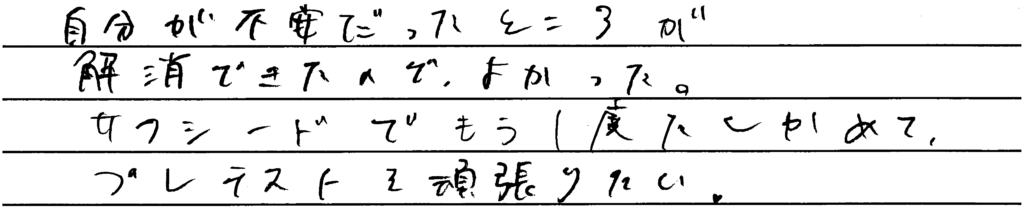 自分が不安だったところが
解消できたので、よかった。
サクシードでもう1度たしかめて、
プレテストを頑張りたい。